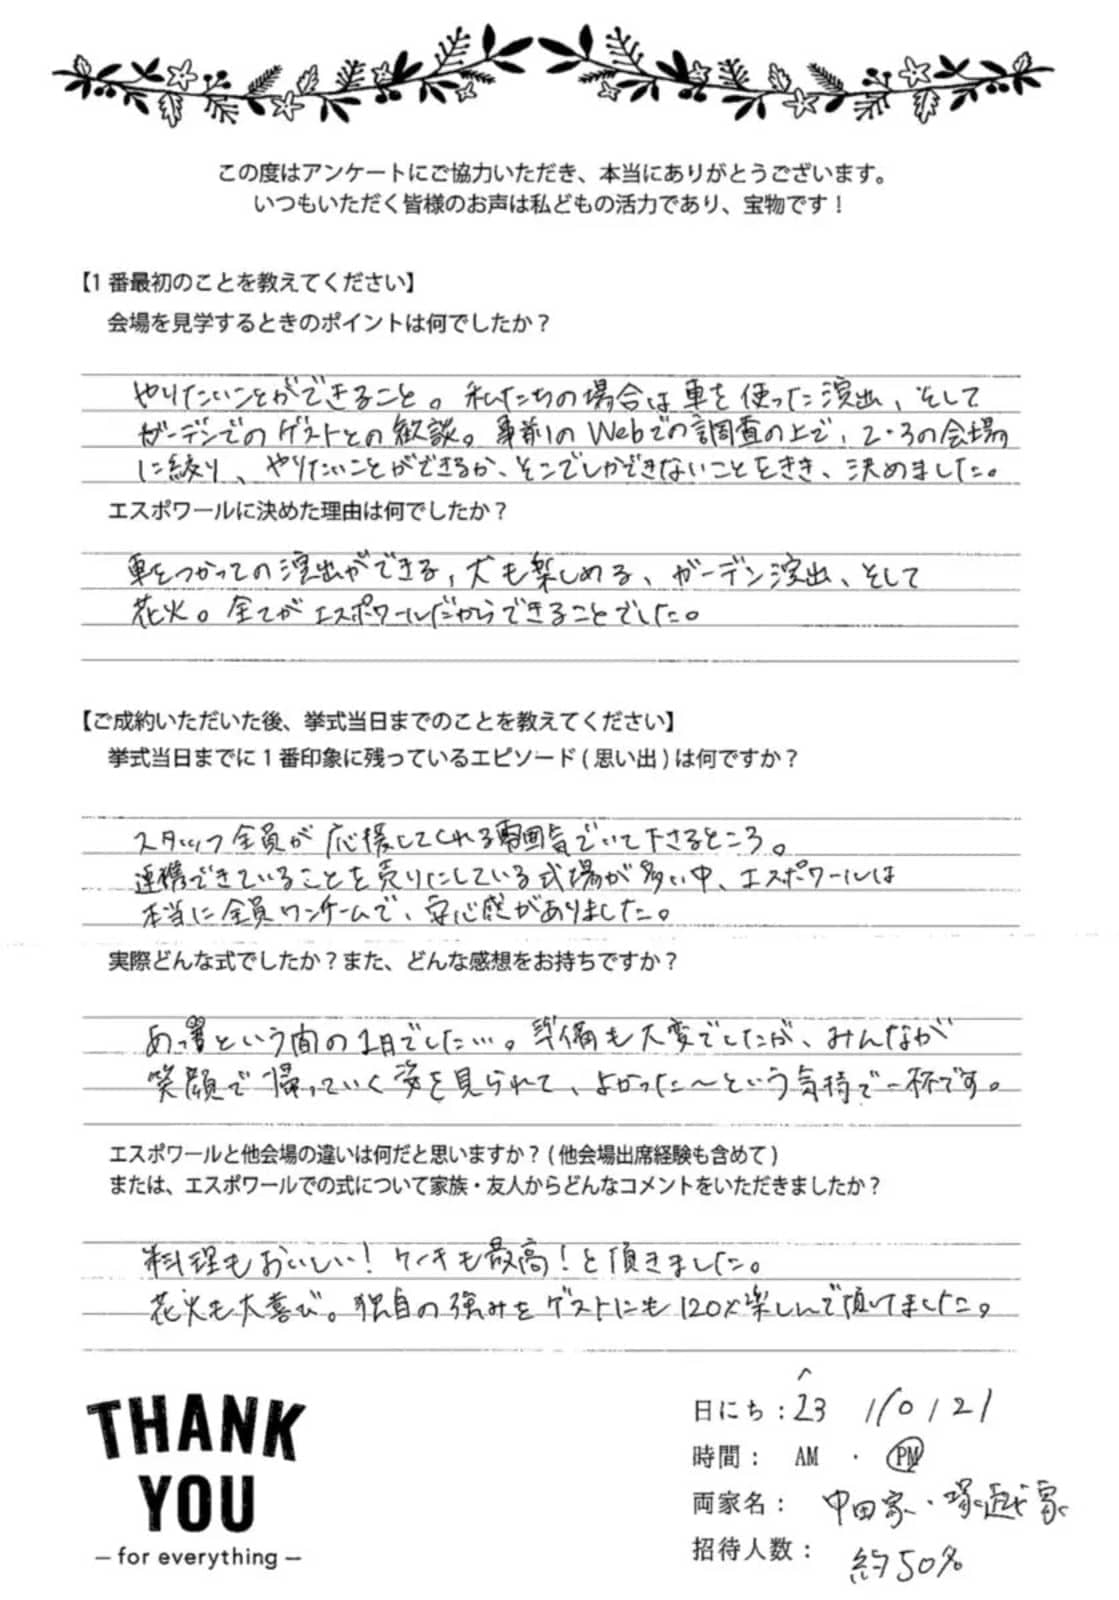 この度はアンケートにご協力いただき、本当にありがとうございます。
いつもいただく皆様のお声は私どもの活力であり、宝物です！
【1番最初のことを教えてください】
会場を見学するときのポイントは何でしたか？
やりたいことができること。私たちの場合は車を使った演出、そして
ガーデンでのゲストとの歓談。事前のWebでの調査の上で、2・3の会場
に絞り、やりたいことができるか、そこでしかできないことをきき、決めました。
エスポワールに決めた理由は何でしたか？
車をつかっての演出ができる、犬も楽しめる、ガーデン演出、そして
花火。全てがエスポワールだからできることでした。
【ご成約いただいた後、挙式当日までのことを教えてください】
挙式当日までに1番印象に残っているエピソード(思い出)は何ですか？
スタッフ全員が応援してくれる雰囲気でいて下さるところ。
連携できていることを売りにしている式場が多い中、エスポワールは
本当に全員ワンチームで、安心感がありました。
実際どんな式でしたか？また、どんな感想をお持ちですか？
あっという間の1日でした…。準備も大変でしたが、みんなが
笑顔で帰っていく姿を見られて、よかった〜という気持で一杯です。
エスポワールと他会場の違いは何だと思いますか？(他会場出席経験も含めて)
または、エスポワールでの式について家族・友人からどんなコメントをいただきましたか？
料理もおいしい！ケーキも最高！と頂きました。
花火も大喜び。独自の強みをゲストにも120%楽しんで頂けました。
THANK
YOU
– for everything –
日にち：23 / 10 / 21
時間： AM ・ PM
両家名： 中田家・塚越家
招待人数： 約50名